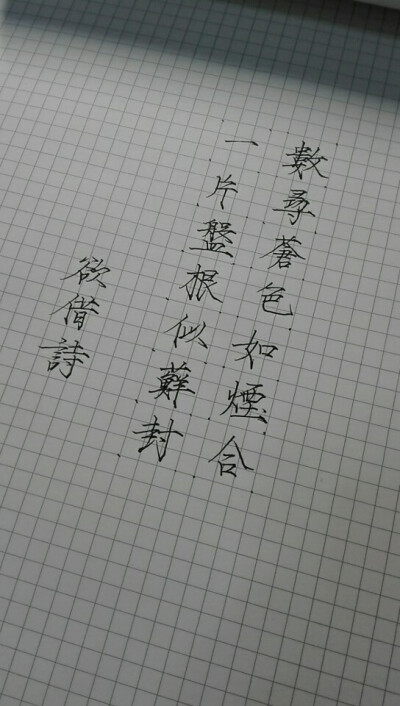 數尋蒼色如煙合
一片盤根似蘚封
欲借詩